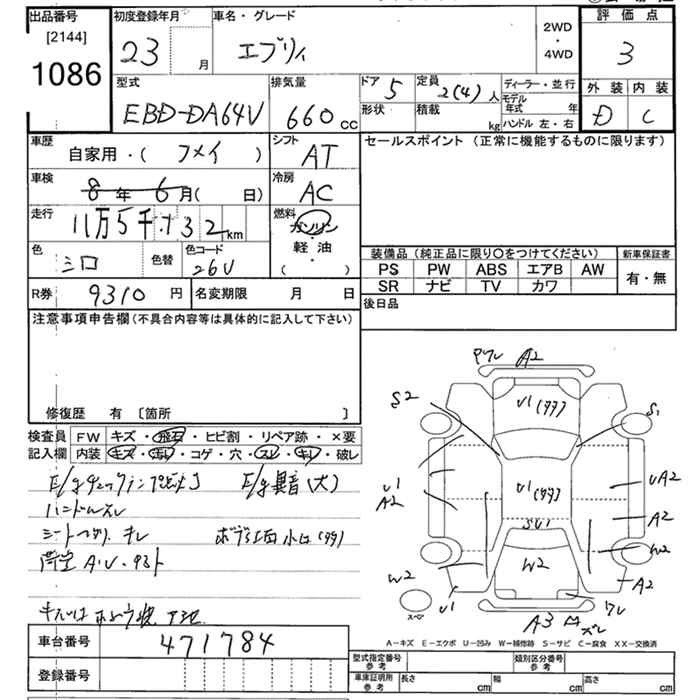 出品番号
[2144]
1086
初度登録年月
23 月
車名・グレード
エブリィ
2WD
・
4WD
評価点
3
外装 内装
D C
型式
EBD-DA64V
排気量
660 cc
ドア 5
形状
定員 2(4) 人
積載 kg
ディーラー・並行
モデル年式 年
ハンドル 左・右
車歴
自家用・( )
シフト
AT
車検
8年6月( 日)
冷房
AC
走行
11万5千132 km
燃料
ガソリン
・
軽・油
( )
色
シロ
色替
色コード
26U
R券 9310 円
名変期限 月 日
セールスポイント (正常に機能するものに限ります)
装備品 (純正品に限り〇をつけてください)
新車保証書
PS PW ABS エアB AW
SR ナビ TV カワ
有・無
後日品
注意事項申告欄 (不具合内容等は具体的に記入して下さい)
修復歴 有 〔箇所 〕
検査員
記入欄
FW キズ・飛石・ヒビ割・リペア跡・×要
内装 キズ・汚れ・コゲ・穴・スレ・キレ・破レ
E/g異音(大)
ハンドルスレ
A2
S2
U1(99)
S1
U1
A2
U1(99)
UA2
A2
SU1
W2
W2
W2
A2
U1
A3
スペア
A-キズ E-エクボ U-凹み W-補修跡 S-サビ C-腐食 XX-交換済
車台番号
471784
登録番号
型式指定番号
参考
類別区分番号
参考
車庫証明所
参考
長さ cm
幅 cm
高さ cm